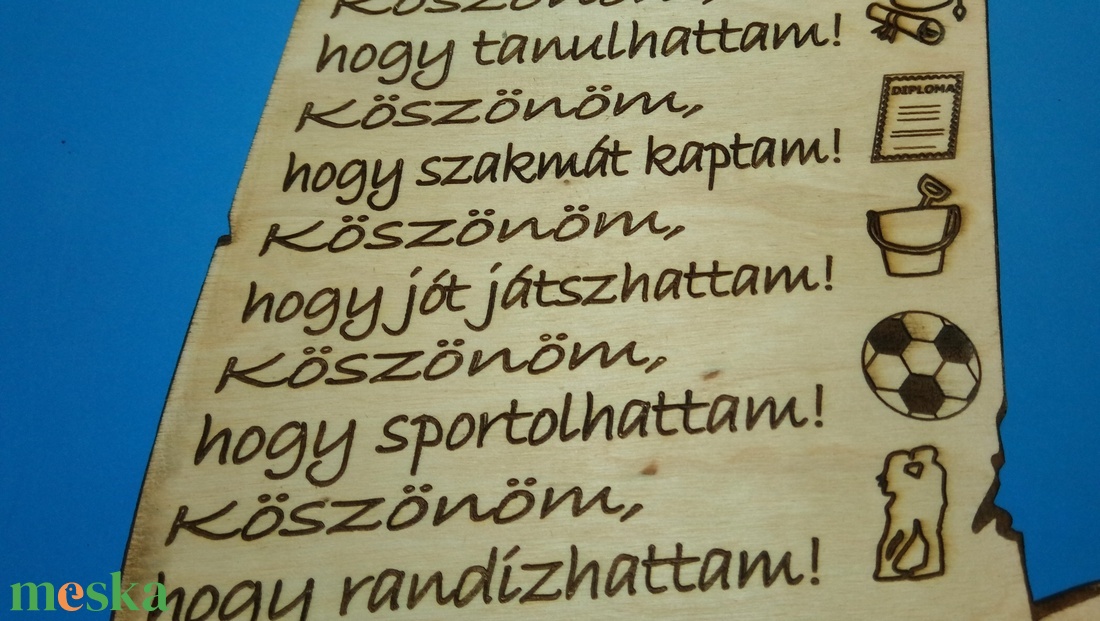 Köszönöm,
hogy tanulhattam!
Köszönöm,
DIPLOMA
hogy szakmát kaptam!
Köszönöm,
hogy jót játszhattam!
Köszönöm,
hogy sportolhattam!
Köszönöm,
hogy randízhattam!
meska